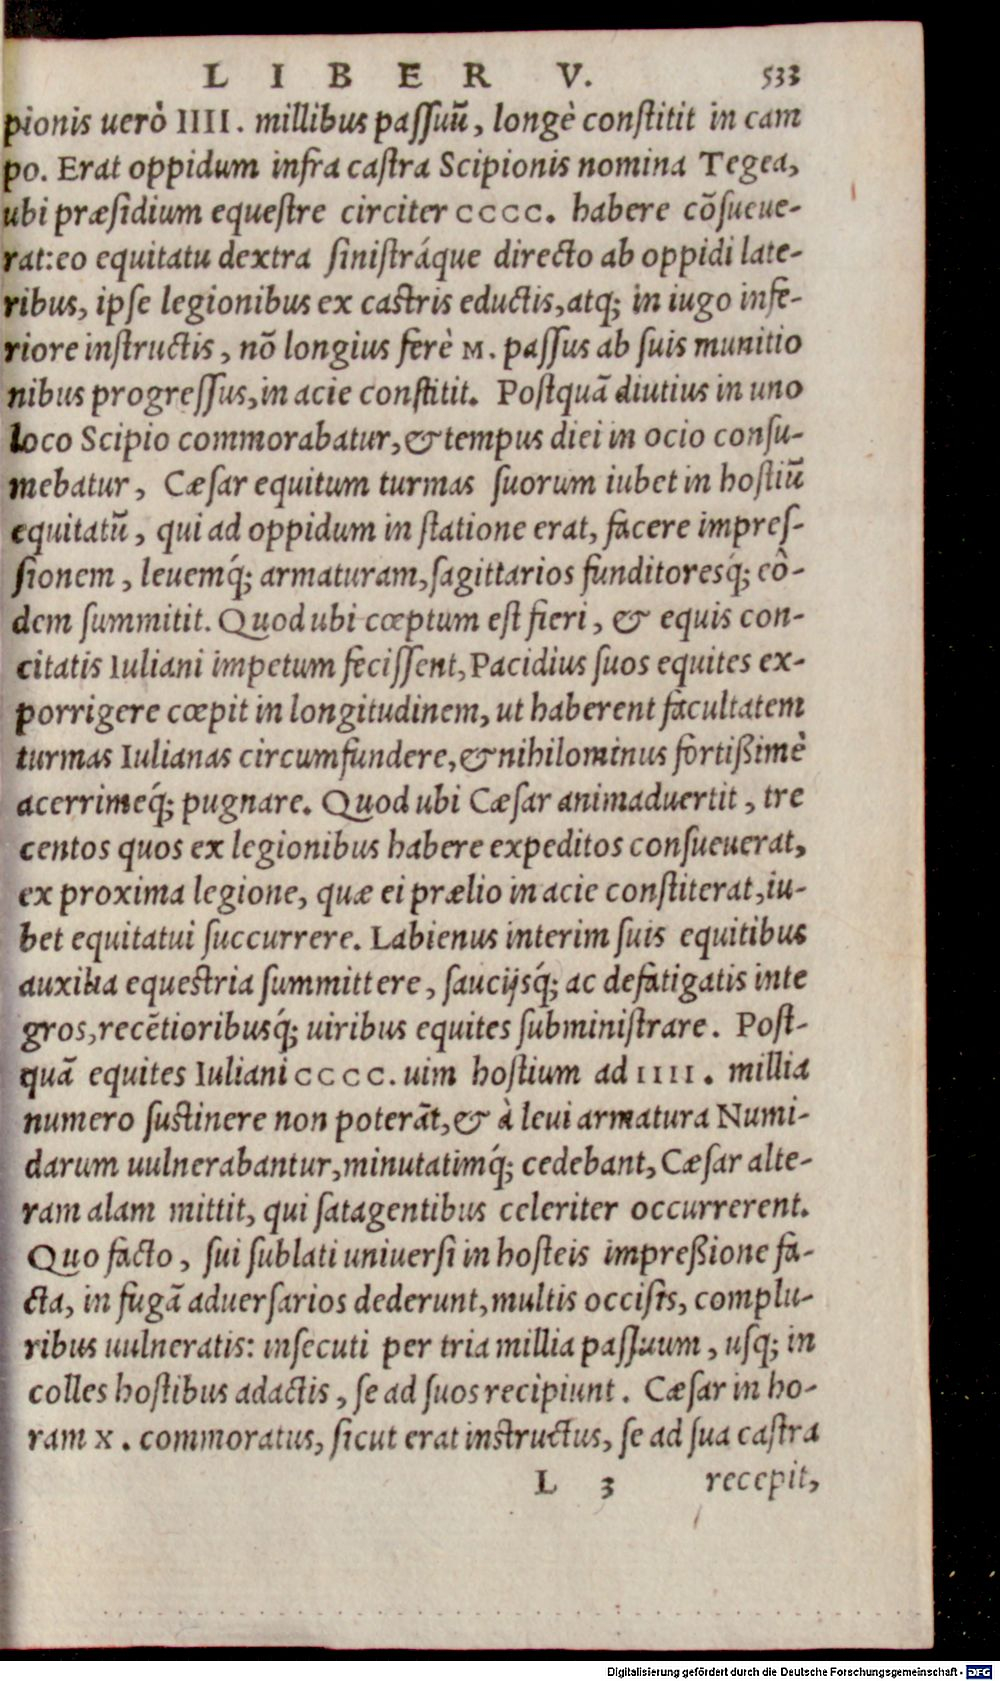 LIBER V. 533
pionis uerò IIII. millibus paſſuũ, longè conſtitit in cam
po. Erat oppidum infra caſtra Scipionis nomina Tegea,
ubi præſidium equeſtre circiter CCCC. habere cõſueue-
rat: eo equitatu dextra ſiniſtráque directo ab oppidi late-
ribus, ipſe legionibus ex caſtris eductis, atq; in iugo infe-
riore inſtructis, nõ longius ferè M. paſſus ab ſuis munitio
nibus progreſſus, in acie conſtitit. Poſtquã diutius in uno
loco Scipio commorabatur, & tempus diei in ocio conſu-
mebatur, Cæſar equitum turmas ſuorum iubet in hoſtiũ
equitatũ, qui ad oppidum in ſtatione erat, facere impreſ-
ſionem, leuemq́; armaturam, ſagittarios funditoresq́; eò-
dem ſummitit. Quod ubi cœptum eſt fieri, & equis con-
citatis Iuliani impetum feciſſent, Pacidius ſuos equites ex-
porrigere cœpit in longitudinem, ut haberent facultatem
turmas Iulianas circumfundere, & nihilominus fortißimè
acerrimeq́; pugnare. Quod ubi Cæſar animaduertit, tre
centos quos ex legionibus habere expeditos conſueuerat,
ex proxima legione, quæ ei prælio in acie conſtiterat, iu-
bet equitatui ſuccurrere. Labienus interim ſuis equitibus
auxilia equeſtria ſummittere, ſaucijsq́; ac defatigatis inte
gros, recẽtioribusq́; uiribus equites ſubminiſtrare. Poſt-
quã equites Iuliani CCCC. uim hoſtium ad IIII. millia
numero ſuſtinere non poterãt, & à leui armatura Numi-
darum uulnerabantur, minutatimq́; cedebant, Cæſar alte-
ram alam mittit, qui ſatagentibus celeriter occurrerent.
Quo facto, ſui ſublati uniuerſi in hoſteis impreßione fa-
cta, in fugã aduerſarios dederunt, multis occiſis, complu-
ribus uulneratis: inſecuti per tria millia paſſuum, uſq; in
colles hoſtibus adactis, ſe ad ſuos recipiunt. Cæſar in ho-
ram X. commoratus, ſicut erat inſtructus, ſe ad ſua caſtra
L 3 recepit,
Digitalisierung gefördert durch die Deutsche Forschungsgemeinschaft - DFG